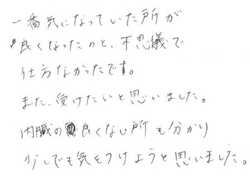 一番気になっていた所が
良くなったのと、不思議で
仕方なかったです。
また、受けたいと思いました。
内臓の良くない所も分かり
少しでも気をつけようと思いました。